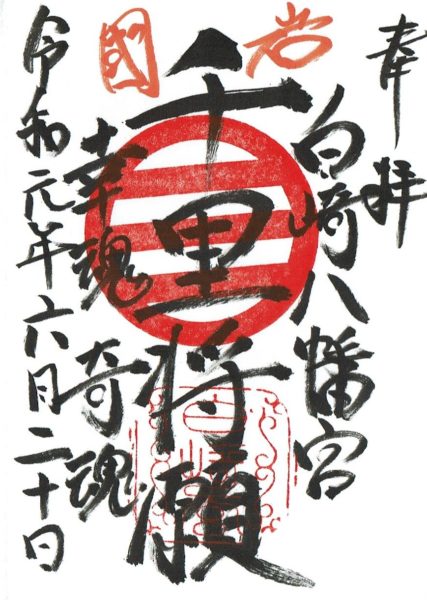 奉拝
白崎八幡宮
岩國
千里将願
幸魂 奇魂
令和元年六月二十日